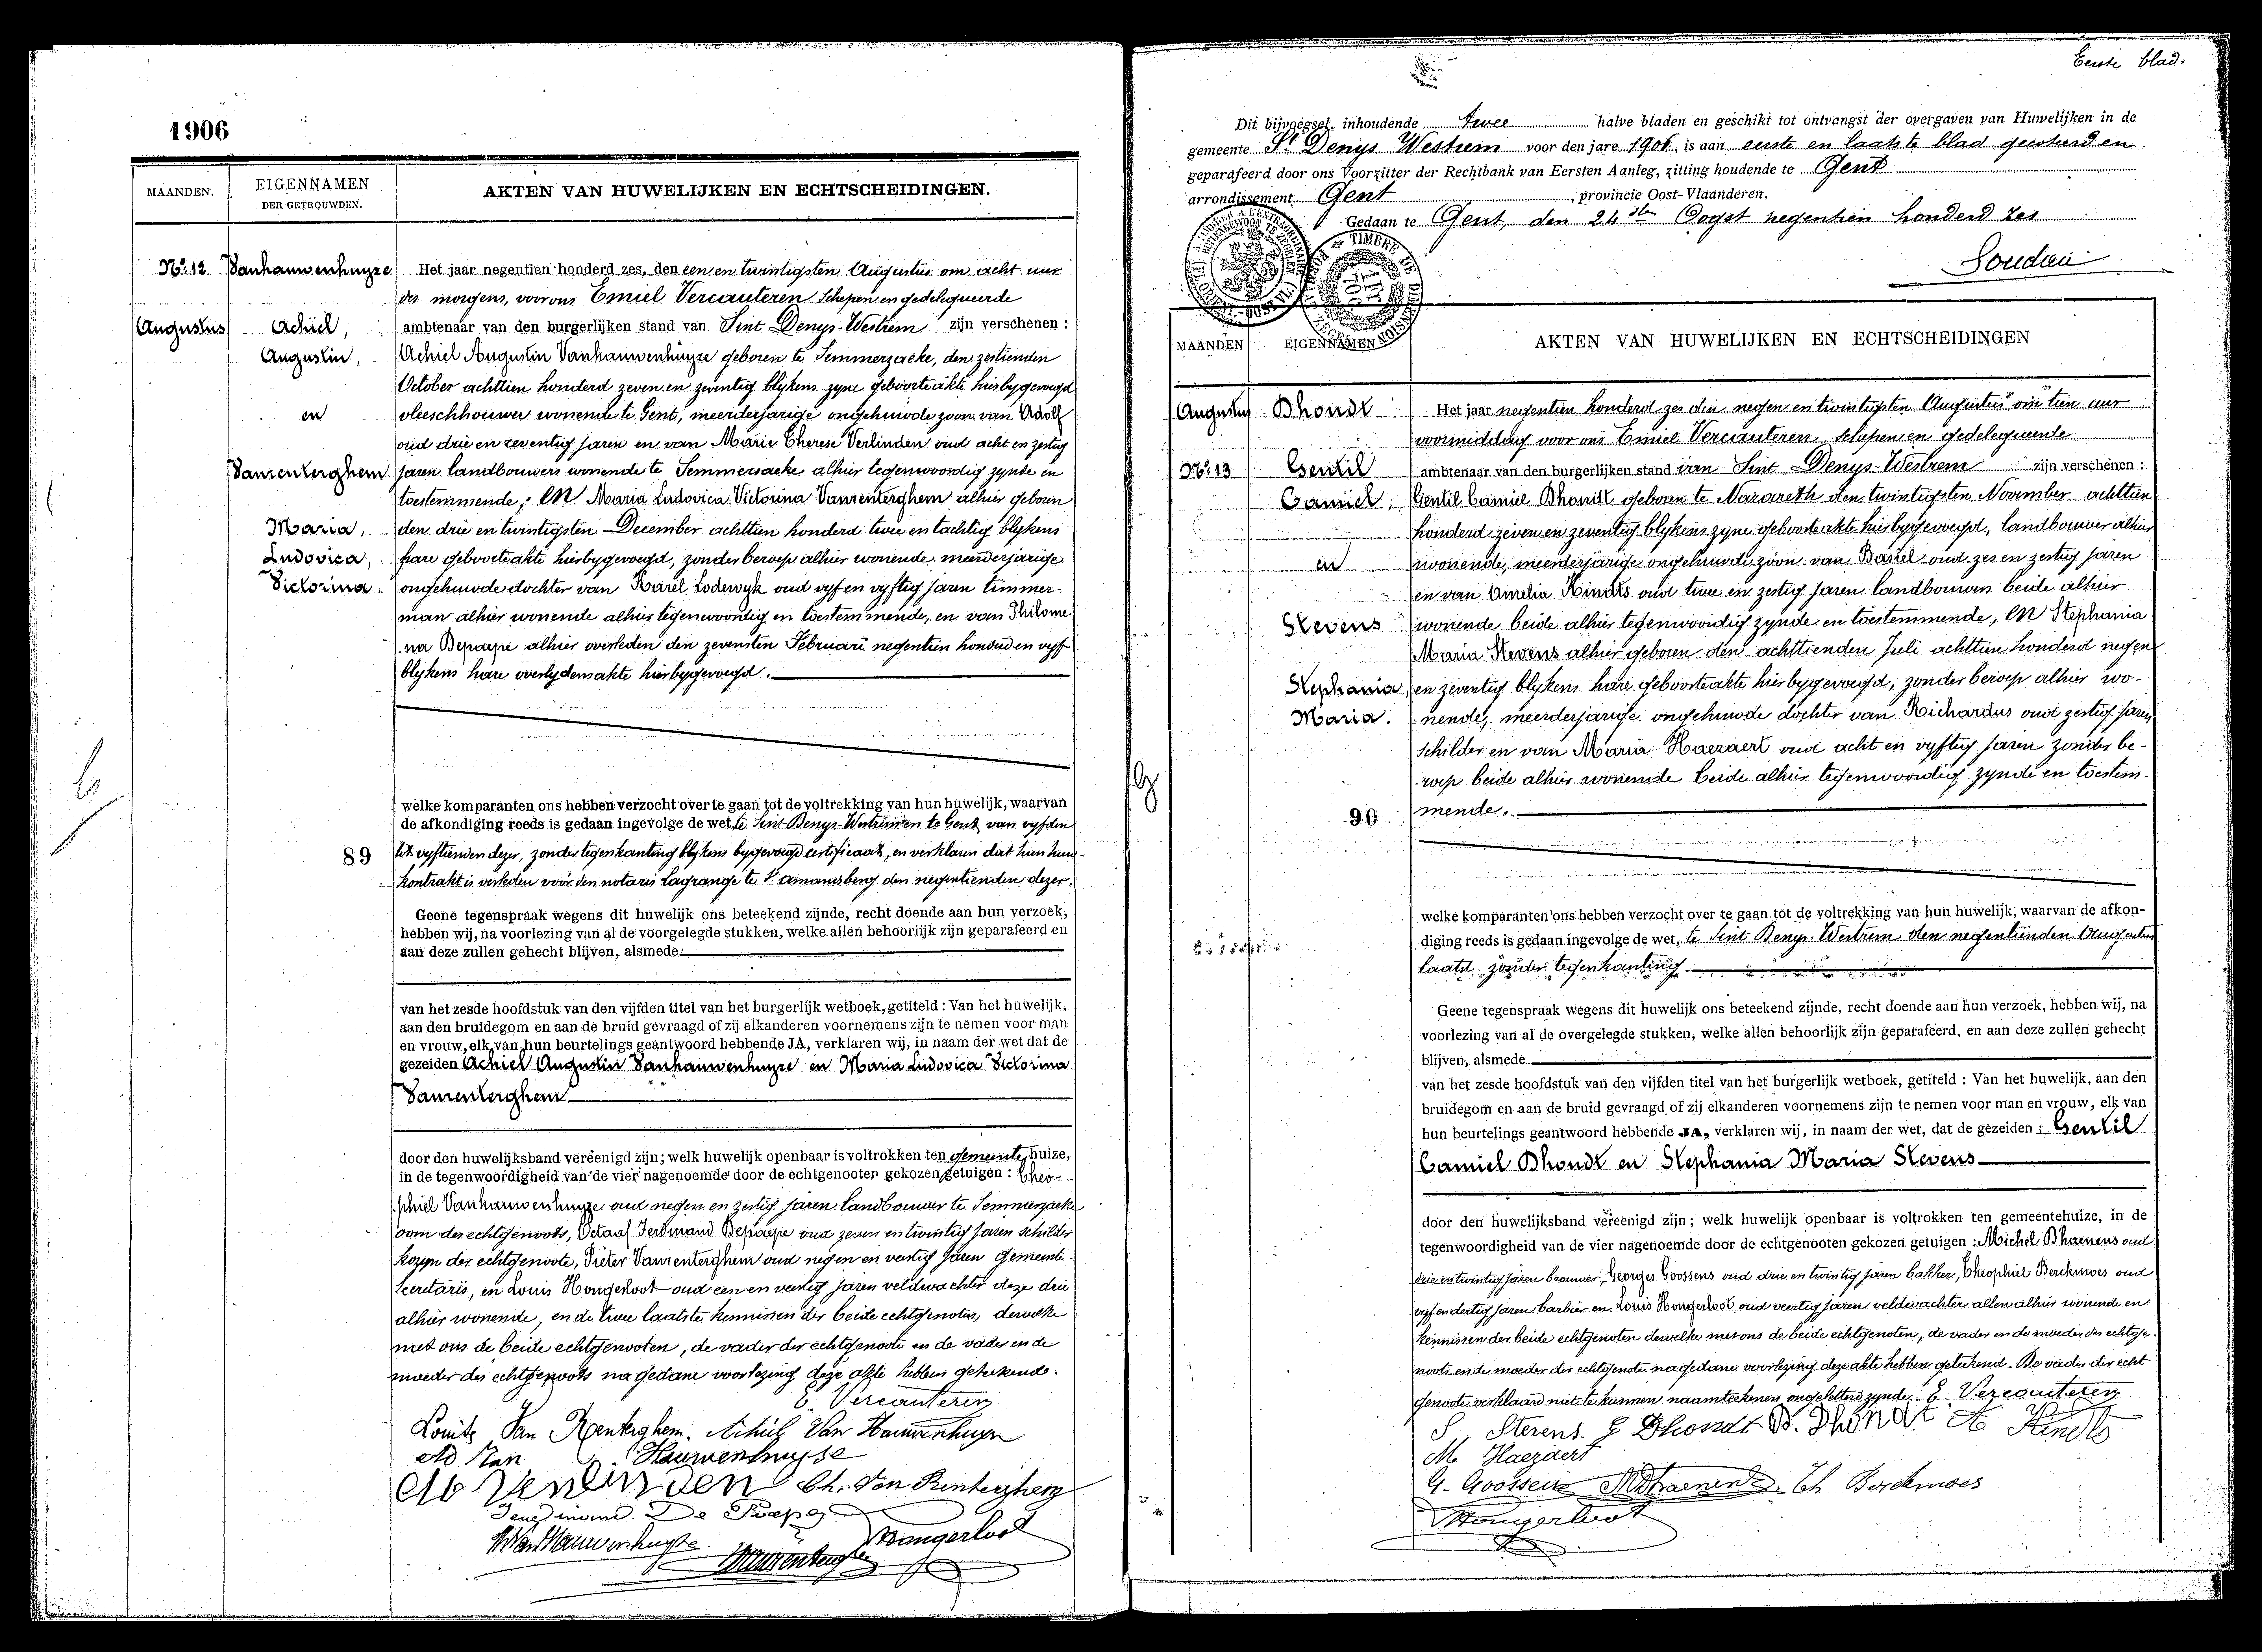 1906
MAANDEN.
EIGENNAMEN
DER GETROUWDEN.
AKTEN VAN HUWELIJKEN EN ECHTSCHEIDINGEN.
No. 12
Vanhauwenhuyze
Augustus
Achiel,
Augustin,
en
Vanrenterghem
Maria,
Ludovica,
Victorina.
89
Het jaar negentien honderd zes, den een en twintigsten Augustus om acht uur
des morgens, voor ons Emiel Vercauteren Schepen en gedelegueerde
ambtenaar van den burgerlijken stand van Sint Denys-Westrem zijn verschenen :
Achiel Augustin Vanhauwenhuyze geboren te Semmerzaeke, den zestienden
October achttien honderd zeven en zeventig blykens zyne geboorteakte hierbygevoegd
vleeschhouwer wonende te Gent, meerderjarige ongehuwde zoon van Adolf
oud drie en zeventig jaren en van Marie Therese Verlinden oud acht en zestig
jaren landbouwers wonende te Semmersaeke alhier tegenwoordig zynde en
toestemmende; En Maria Ludovica Victorina Vanrenterghem alhier geboren
den drie en twintigsten December achttien honderd twee en tachtig blykens
hare geboorteakte hierbygevoegd, zonder beroep alhier wonende meerderjarige
ongehuwde dochter van Karel Lodewyk oud vyf en vyftig jaren timmer-
man alhier wonende alhier tegenwoordig en toestemmende, en van Philome-
na Depaepe alhier overleden den zevensten Februari negentien honderd en vyf
blykens hare overlydensakte hierbygevoegd.
welke komparanten ons hebben verzocht over te gaan tot de voltrekking van hun huwelijk, waarvan
de afkondiging reeds is gedaan ingevolge de wet, te Sint Denys-Westrem en te Gent van vyfden
tot vyftienden dezer, zonder tegenkanting blykens bygevoegd certificaat, en verklaren dat hun huw-
kontrakt is verleden voor den notaris Lagrange te St amandsberg den negentienden dezer.
Geene tegenspraak wegens dit huwelijk ons beteekend zijnde, recht doende aan hun verzoek,
hebben wij, na voorlezing van al de voorgelegde stukken, welke allen behoorlijk zijn geparafeerd en
aan deze zullen gehecht blijven, alsmede
van het zesde hoofdstuk van den vijfden titel van het burgerlijk wetboek, getiteld : Van het huwelijk,
aan den bruidegom en aan de bruid gevraagd of zij elkanderen voornemens zijn te nemen voor man
en vrouw, elk van hun beurtelings geantwoord hebbende JA, verklaren wij, in naam der wet dat de
gezeiden Achiel Augustin Vanhauwenhuyze en Maria Ludovica Victorina
Vanrenterghem
door den huwelijksband vereenigd zijn; welk huwelijk openbaar is voltrokken ten gemeentehuize,
in de tegenwoordigheid van de vier nagenoemde door de echtgenooten gekozen getuigen : Theo-
phiel Vanhauwenhuyze oud negen en zestig jaren landbouwer te Semmerzaeke
oom des echtgenoots, Octaaf Ferdinand Depaepe oud zeven en twintig jaren schilder
kozyn der echtgenoote, Pieter Vanrenterghem oud negen en veertig jaren gemeente-
secretaris, en Louis Hongerloot oud een en veertig jaren veldwachter deze drie
alhier wonende, en de twee laatste kennissen der beide echtgenoten, dewelke
met ons de beide echtgenooten, de vader der echtgenoote en de vader en de
moeder des echtgenoots na gedane voorlezing deze akte hebben geteekend.
E. Vercauteren
Louise Van Renterghem. Achiel Van Hauwenhuyse
Ad Van Hauwenhuyse
Verlinden Ch. Van Renterghem
Ferdinand De Paepe
Van Hauwenhuyse
Hongerloot
Eerste blad.
Dit bijvoegsel, inhoudende twee halve bladen en geschikt tot ontvangst der overgaven van Huwelijken in de
gemeente St Denys Westrem voor den jare 1906, is aan eerste en laatste blad gecoteerd en
geparafeerd door ons Voorzitter der Rechtbank van Eersten Aanleg, zitting houdende te Gent
arrondissement Gent, provincie Oost-Vlaanderen.
Gedaan te Gent, den 24sten Oogst negentien honderd zes
MAANDEN
EIGENNAMEN
AKTEN VAN HUWELIJKEN EN ECHTSCHEIDINGEN
Augustus
Dhondt
No. 13
Gentil
Camiel,
en
Stevens
Stephania,
Maria.
90
Het jaar negentien honderd zes den negen en twintigsten Augustus om tien uur
voormiddag voor ons Emiel Vercauteren schepen en gedelegueerde
ambtenaar van den burgerlijken stand van Sint Denys-Westrem zijn verschenen :
Gentil Camiel Dhondt geboren te Nazareth den twintigsten November achttien
honderd zeven en zeventig blykens zyne geboorteakte hierbygevoegd, landbouwer alhier
wonende, meerderjarige ongehuwde zoon van Basiel oud zes en zestig jaren
en van Amelia Kindts oud twee en zestig jaren landbouwers beide alhier
wonende beide alhier tegenwoordig zynde en toestemmende, En Stephania
Maria Stevens alhier geboren den achttienden Juli achttien honderd negen
en zeventig blykens hare geboorteakte hierbygevoegd, zonder beroep alhier wo-
nende, meerderjarige ongehuwde dochter van Richardus oud zestig jaren
schilder en van Maria Haezaert oud acht en vyftig jaren zonder be-
roep beide alhier wonende beide alhier tegenwoordig zynde en toestem-
mende.
welke komparanten ons hebben verzocht over te gaan tot de voltrekking van hun huwelijk, waarvan de afkon-
diging reeds is gedaan ingevolge de wet, te Sint Denys-Westrem den negentienden Augustus
laatst zonder tegenkanting.
Geene tegenspraak wegens dit huwelijk ons beteekend zijnde, recht doende aan hun verzoek, hebben wij, na
voorlezing van al de overgelegde stukken, welke allen behoorlijk zijn geparafeerd, en aan deze zullen gehecht
blijven, alsmede
van het zesde hoofdstuk van den vijfden titel van het burgerlijk wetboek, getiteld : Van het huwelijk, aan den
bruidegom en aan de bruid gevraagd of zij elkanderen voornemens zijn te nemen voor man en vrouw, elk van
hun beurtelings geantwoord hebbende JA, verklaren wij, in naam der wet, dat de gezeiden : Gentil
Camiel Dhondt en Stephania Maria Stevens
door den huwelijksband vereenigd zijn; welk huwelijk openbaar is voltrokken ten gemeentehuize, in de
tegenwoordigheid van de vier nagenoemde door de echtgenooten gekozen getuigen : Michel Dhaenens oud
drie en twintig jaren brouwer, Georges Goossens oud drie en twintig jaren bakker, Theophiel Berckmoes oud
vyf en dertig jaren barbier en Louis Hongerloot oud veertig jaren veldwachter allen alhier wonende en
kennissen der beide echtgenoten dewelke met ons de beide echtgenoten, de vader en de moeder des echtge-
noots en de moeder der echtgenote na gedane voorlezing deze akte hebben geteekend. De vader der echt
genoote verklaard niet te kunnen naamteekenen ongeletterd zynde. E. Vercauteren
S. Stevens. G Dhondt B. Dhondt A Kindts
M Haezaert
G. Goossens M Dhaenens Th Berckmoes
Hongerloot